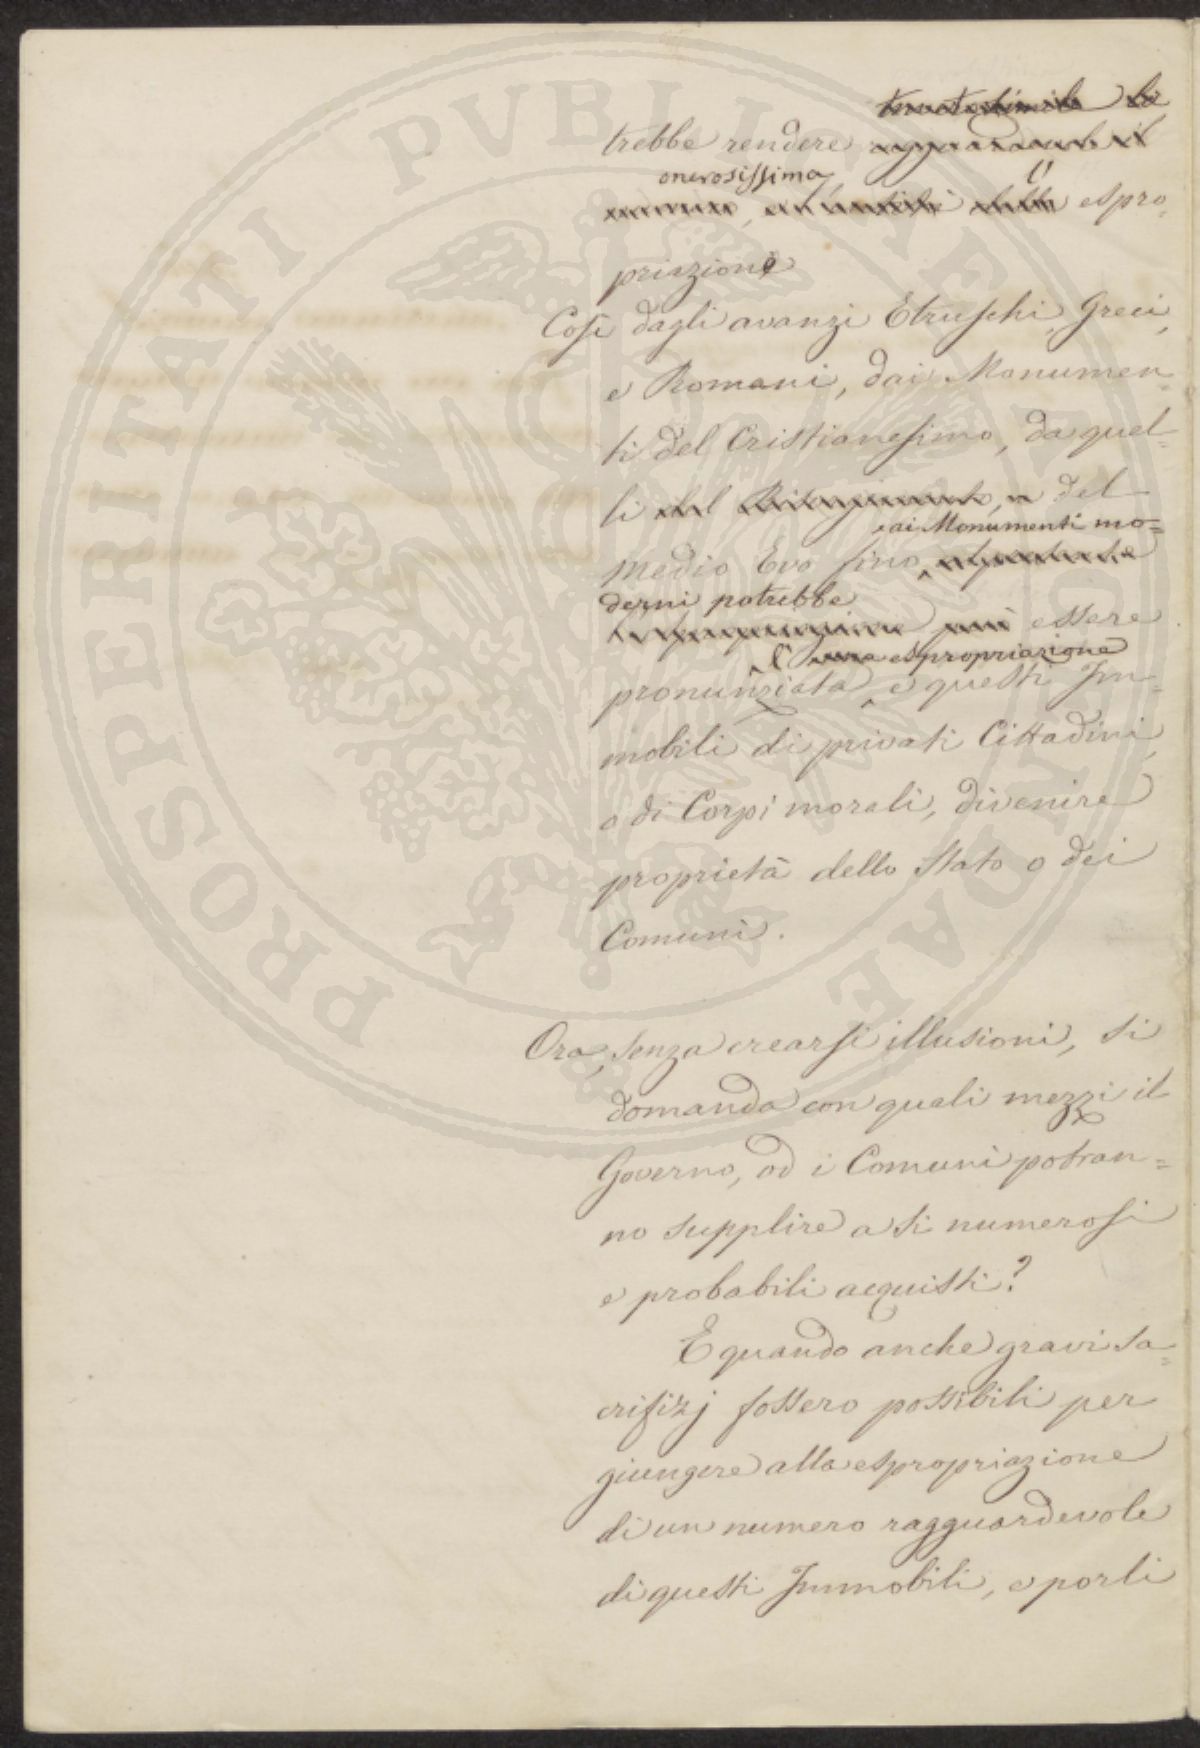 trebbe rendere
onerosissima, l'
espro-
priazione
Così dagli avanzi Etruschi, Greci,
e Romani, dai Monumen=
ti del Cristianesimo, da quel=
li del
ai Monumenti mo=
Medio Evo fino
derni potrebbe
essere
l' espropriazione
pronunziata e questi Im=
mobili di privati Cittadini,
o di Corpi morali, divenire
proprietà dello Stato o dei
Comuni.
Ora, senza crearsi illusioni, si
domanda con quali mezzi il
Governo, od i Comuni potran=
no supplire a sì numerosi
e probabili acquisti?
E quando anche gravi sa=
crifizj fossero possibili per
giungere alla espropriazione
di un numero ragguardevole
di questi Immobili, e porli
PROSPERITATI PVBLICAE